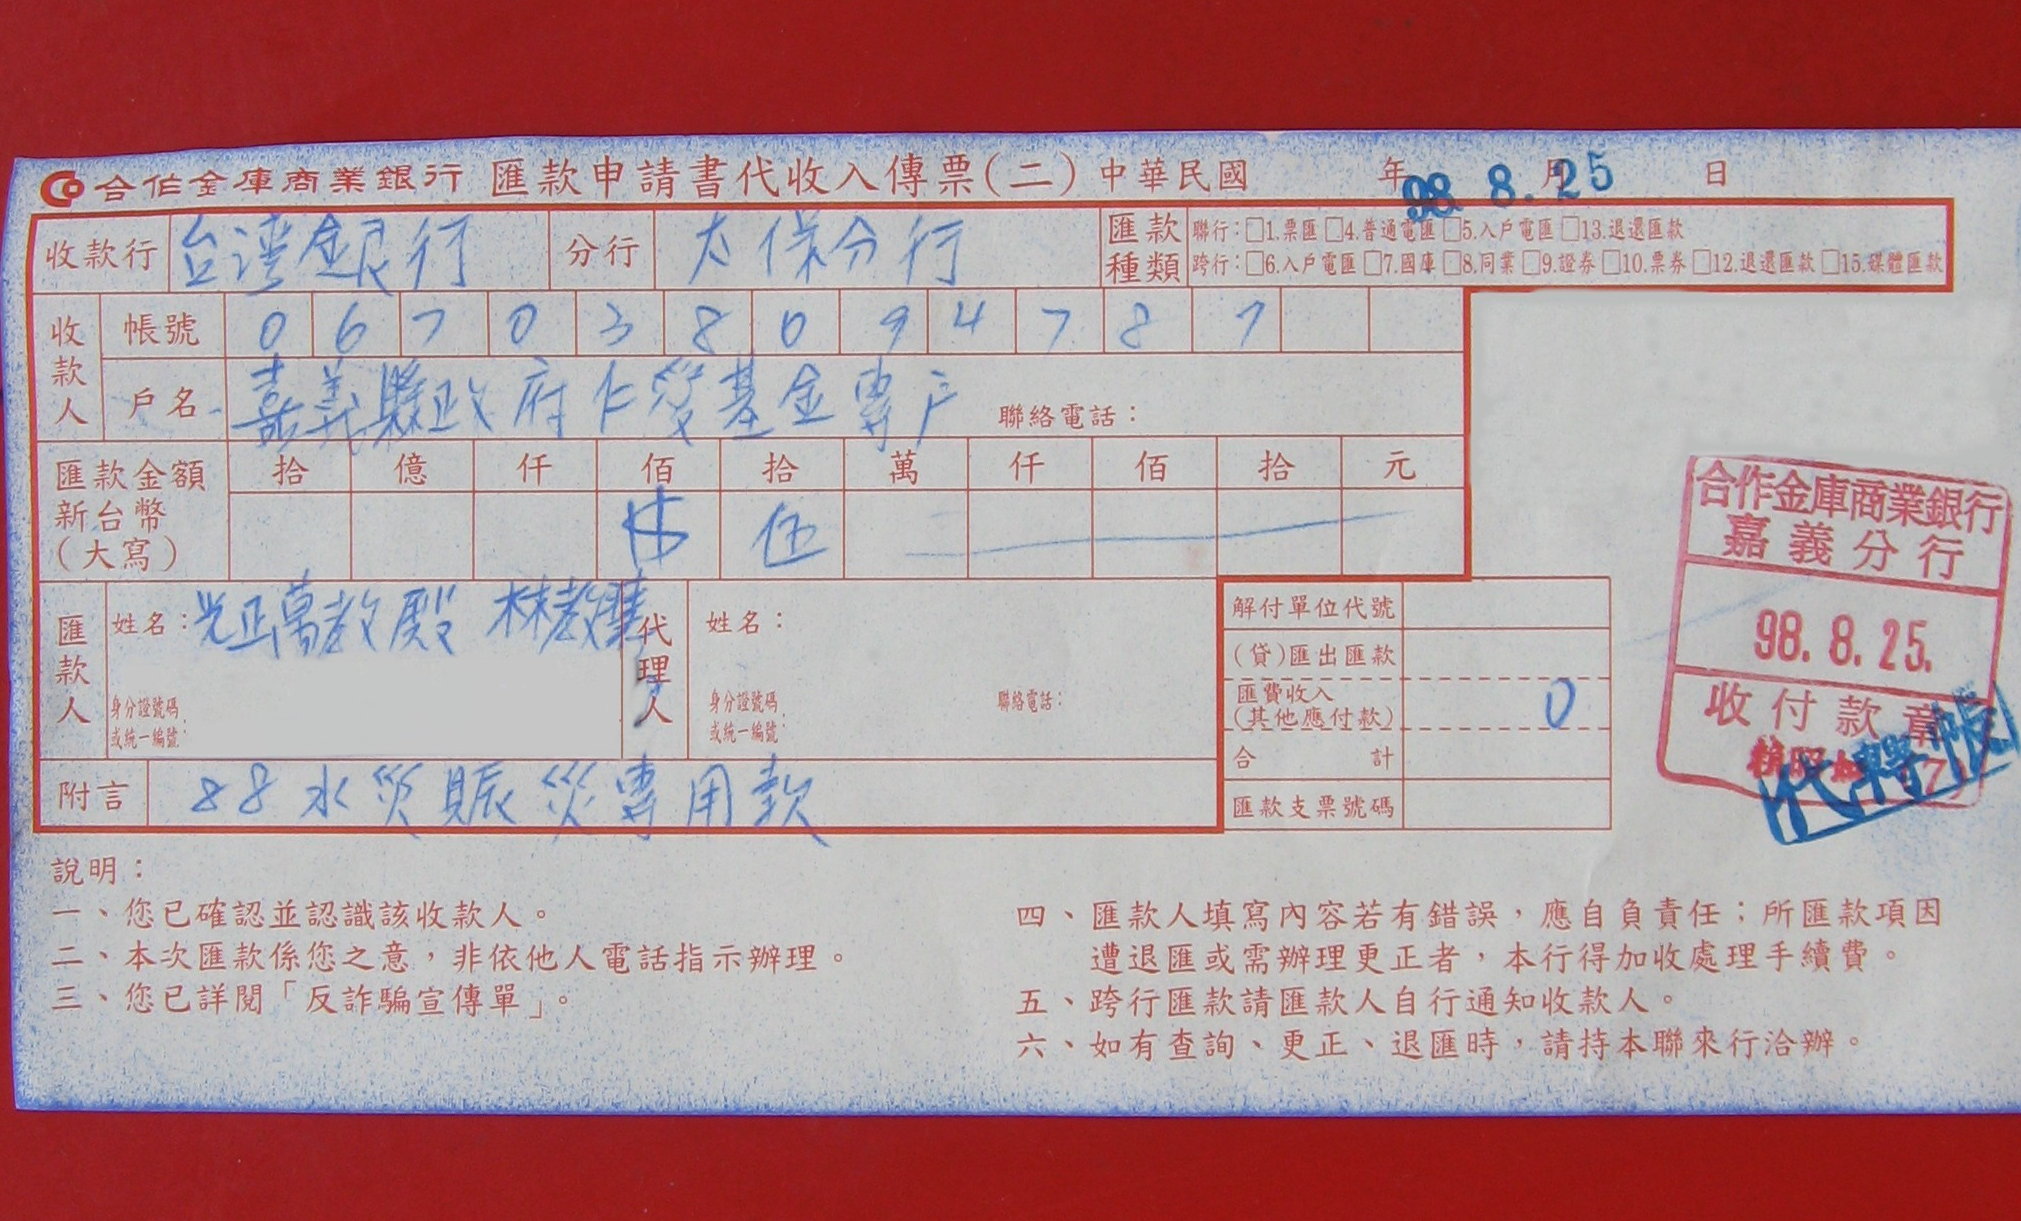 合作金庫商業銀行 匯款申請書代收入傳票(二) 中華民國 年 月 日
98. 8. 25
收款行 台灣銀行 分行 太保分行
匯款種類
聯行:□1.票匯□4.普通電匯□5.入戶電匯□13.退還匯款
跨行:□6.入戶電匯□7.國庫□8.同業□9.證券□10.票券□12.退還匯款□15.媒體匯款
收款人
帳號 0 6 7 0 3 8 0 9 4 7 8 7
戶名 嘉義縣政府仁愛基金專戶 聯絡電話:
匯款金額 新台幣 (大寫)
拾 億 仟 佰 拾 萬 仟 佰 拾 元
$ 伍
匯款人
姓名: 光正萬教殿 林教
身分證號碼
或統一編號:
代理人
姓名:
身分證號碼
或統一編號:
聯絡電話:
附言 88水災賑災專用款
解付單位代號
(貸)匯出匯款
匯費收入
(其他應付款) 0
合 計
匯款支票號碼
合作金庫商業銀行
嘉義分行
98. 8. 25.
收付款章
代轉帳
說明:
一、您已確認並認識該收款人。
二、本次匯款係您之意,非依他人電話指示辦理。
三、您已詳閱「反詐騙宣傳單」。
四、匯款人填寫內容若有錯誤,應自負責任;所匯款項因
遭退匯或需辦理更正者,本行得加收處理手續費。
五、跨行匯款請匯款人自行通知收款人。
六、如有查詢、更正、退匯時,請持本聯來行洽辦。